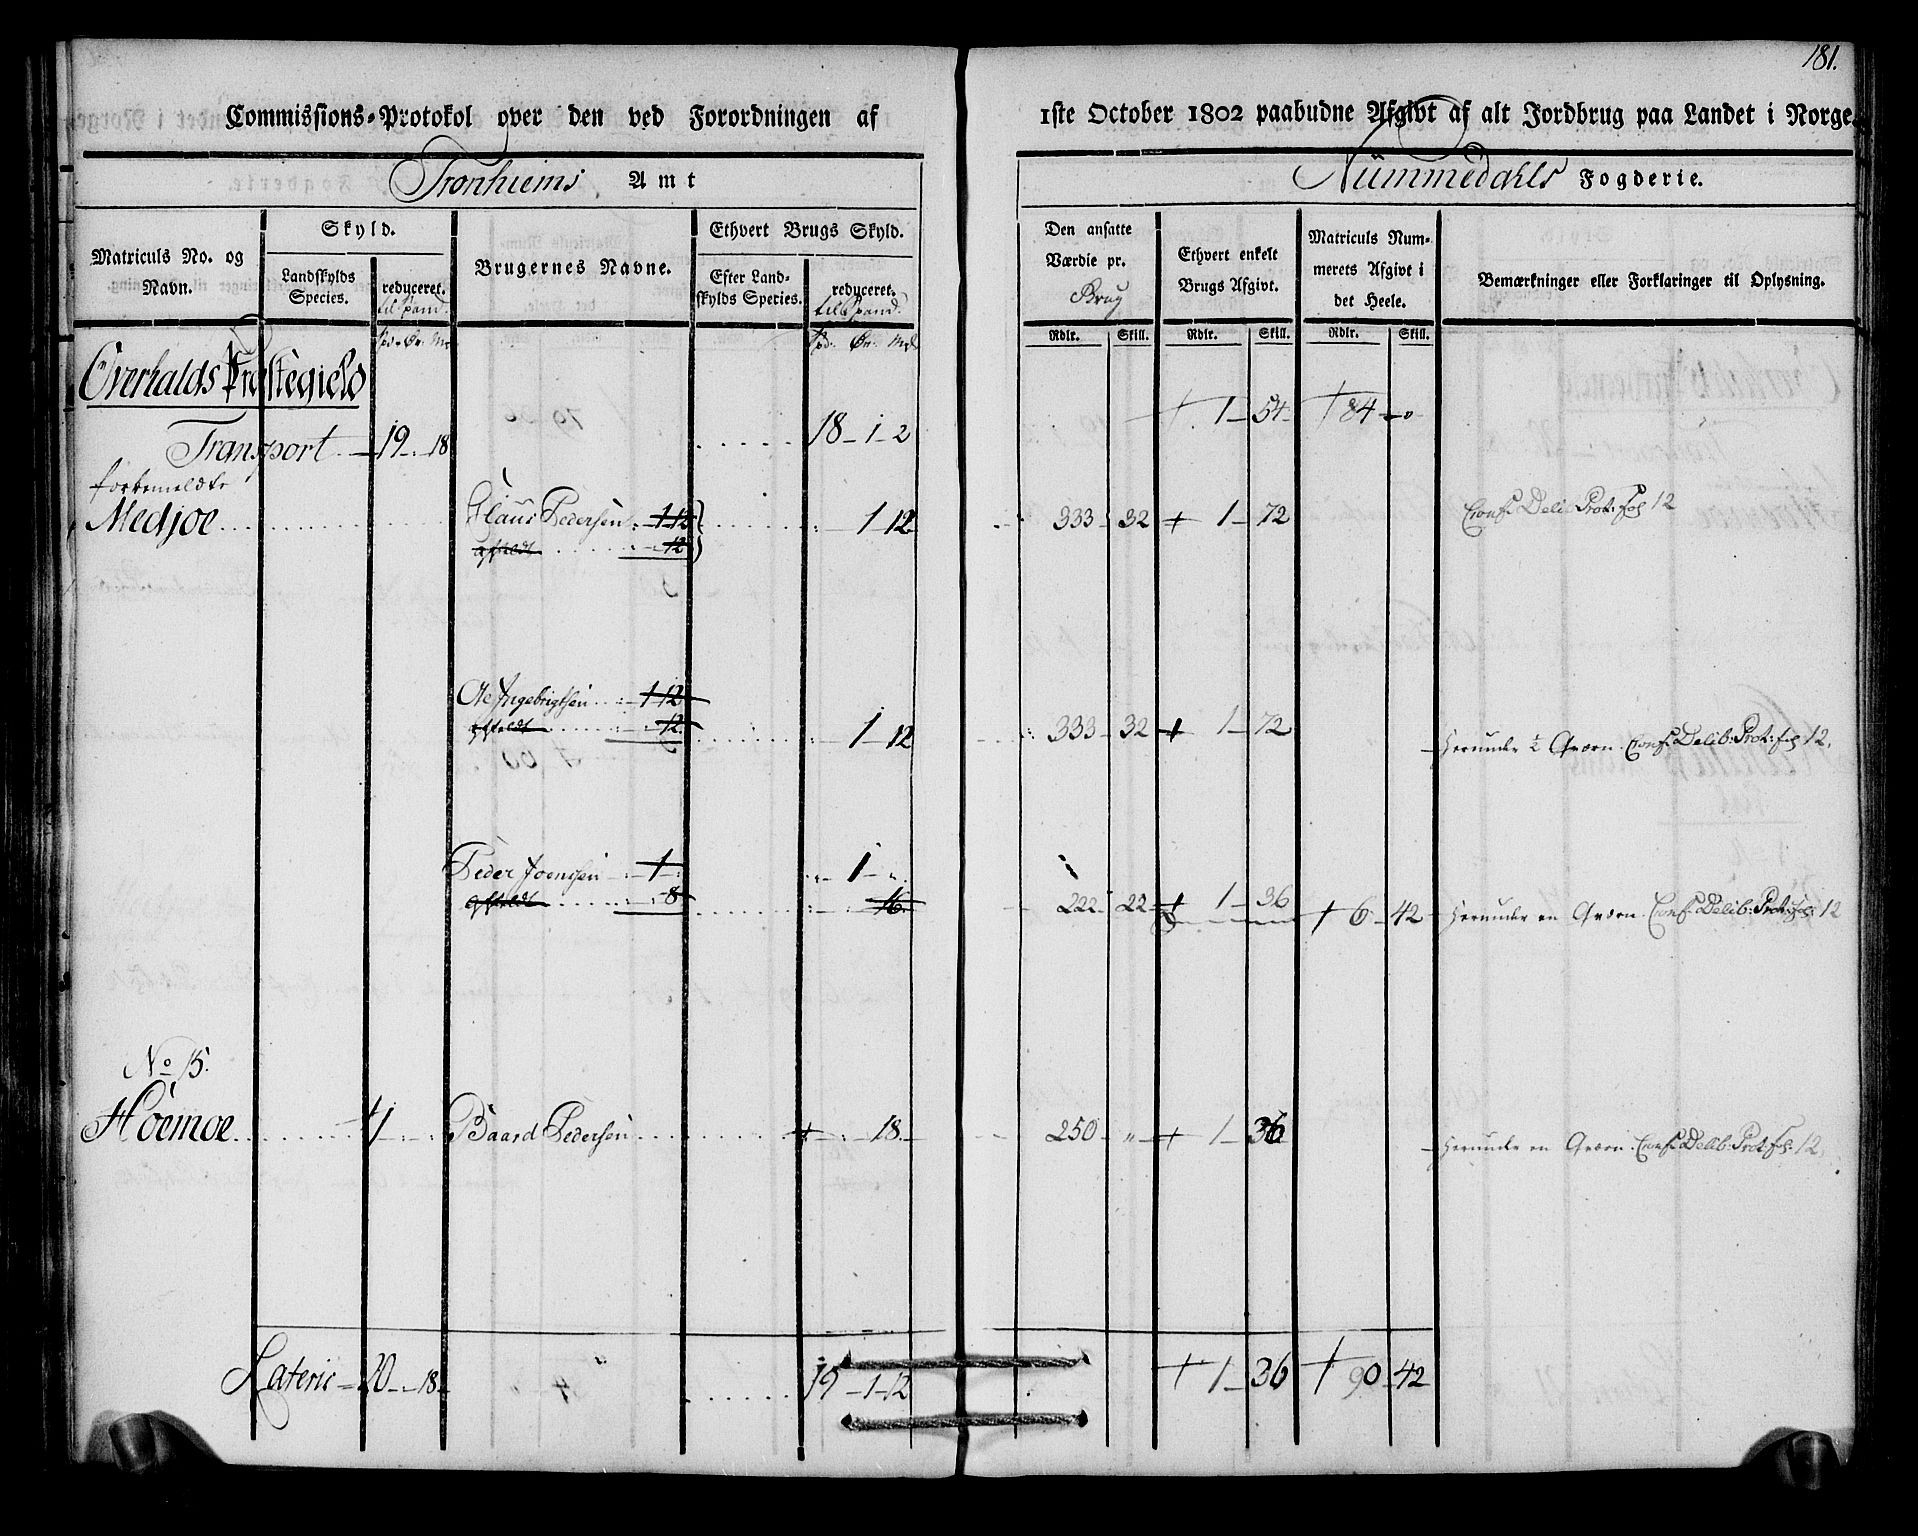 181.
Commissions-Protokol over den ved Forordningen af 1ste October 1802 paabudne Afgivt af alt Jordbrug paa Landet i Norge.
Tronhiems Amt
Nummedahls Fogderie.
Matriculs No. og Navn.
Skyld.
Landskylds Species.
reduceret.
til Spand.
Brugernes Navne.
Ethvert Brugs Skyld.
Efter Landskylds Speries.
reduceret.
til Spand.
Den ansatte Værdie pr. Brug
Ethvert enkelt Brugs Afgivt.
Matriculs Nummerets Afgivt i det Heele.
Bemærkninger eller Forklaringer til Oplysning.
Rdlr. Skill. Rdlr. Skill. Rdlr. Skill.
Overhalds Præstegield
Transport 19 - 18 18 - 1 - 2 + 1 - 54 + 84 - 0
forbemeldte
Medjoe Claus Pedersen 1-12 1 12 333 32 + 1 - 72 Conf. Delib. Prot. fol 12
12
Ole Ingebrigtsen 1-12
12 1 - 12 333 32 + 1 - 72 Herunder ½ Qværn. Conf. Delib. Prot. fol 12.
Peder Joensen 1 1
8 16 222 22 + 1 - 36 + 6 - 42 Herunder en Qværn. Conf. Delib. Prot. fol. 12
No 15.
Hoemoe + 1 Baard Pedersen + 18. 250 " + 1 - 36 Herunder en Qværn. Conf. Delib. Prot. fol. 12.
Lateris 20 - 18 19 - 1 - 12 + 1 - 36 + 90 - 42